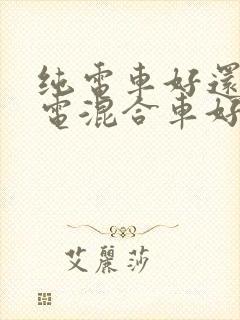 纯電車好還
電混合車好
艾麗莎